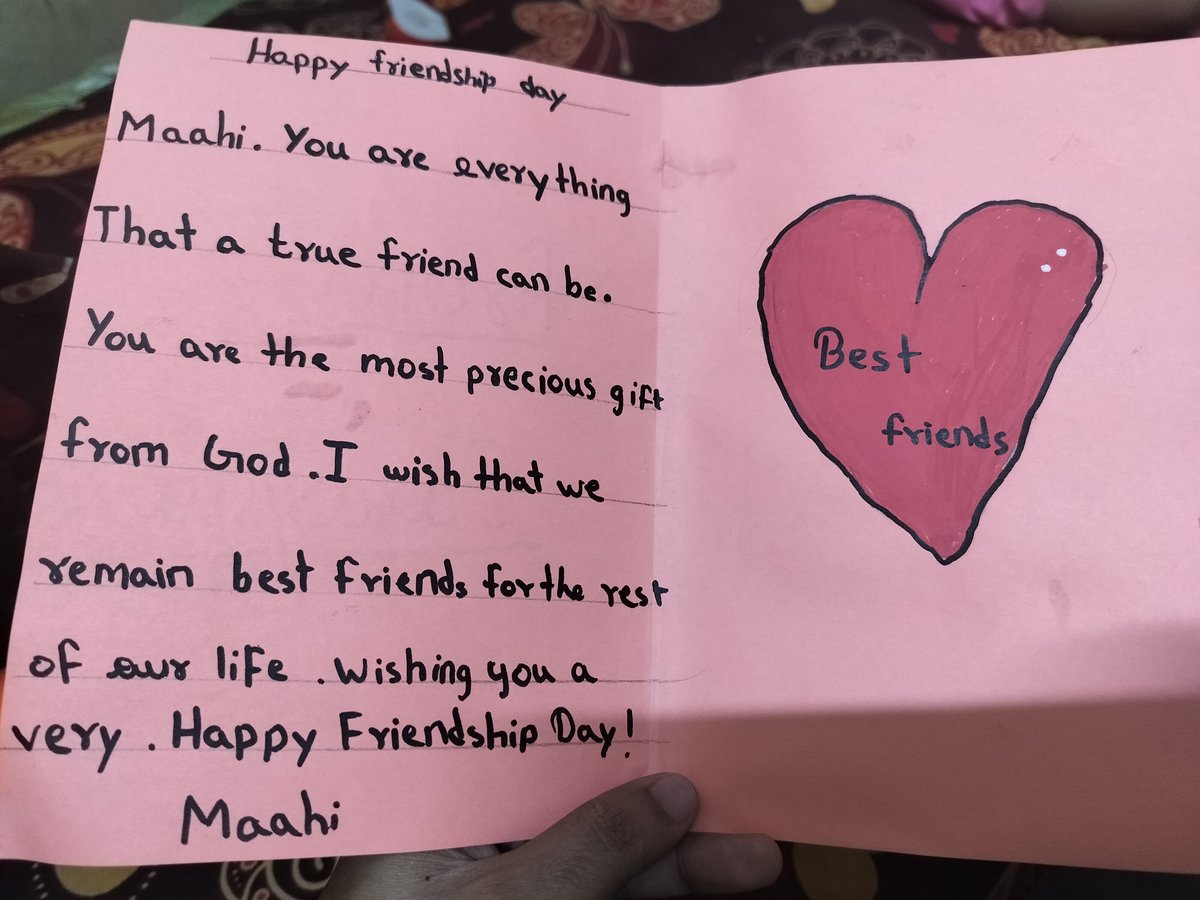 Happy friendship day
Maahi. You are everything
That a true friend can be.
You are the most precious gift
from God. I wish that we
remain best friends for the rest
of our life. Wishing you a
very. Happy Friendship Day!
Maahi
Best
friends